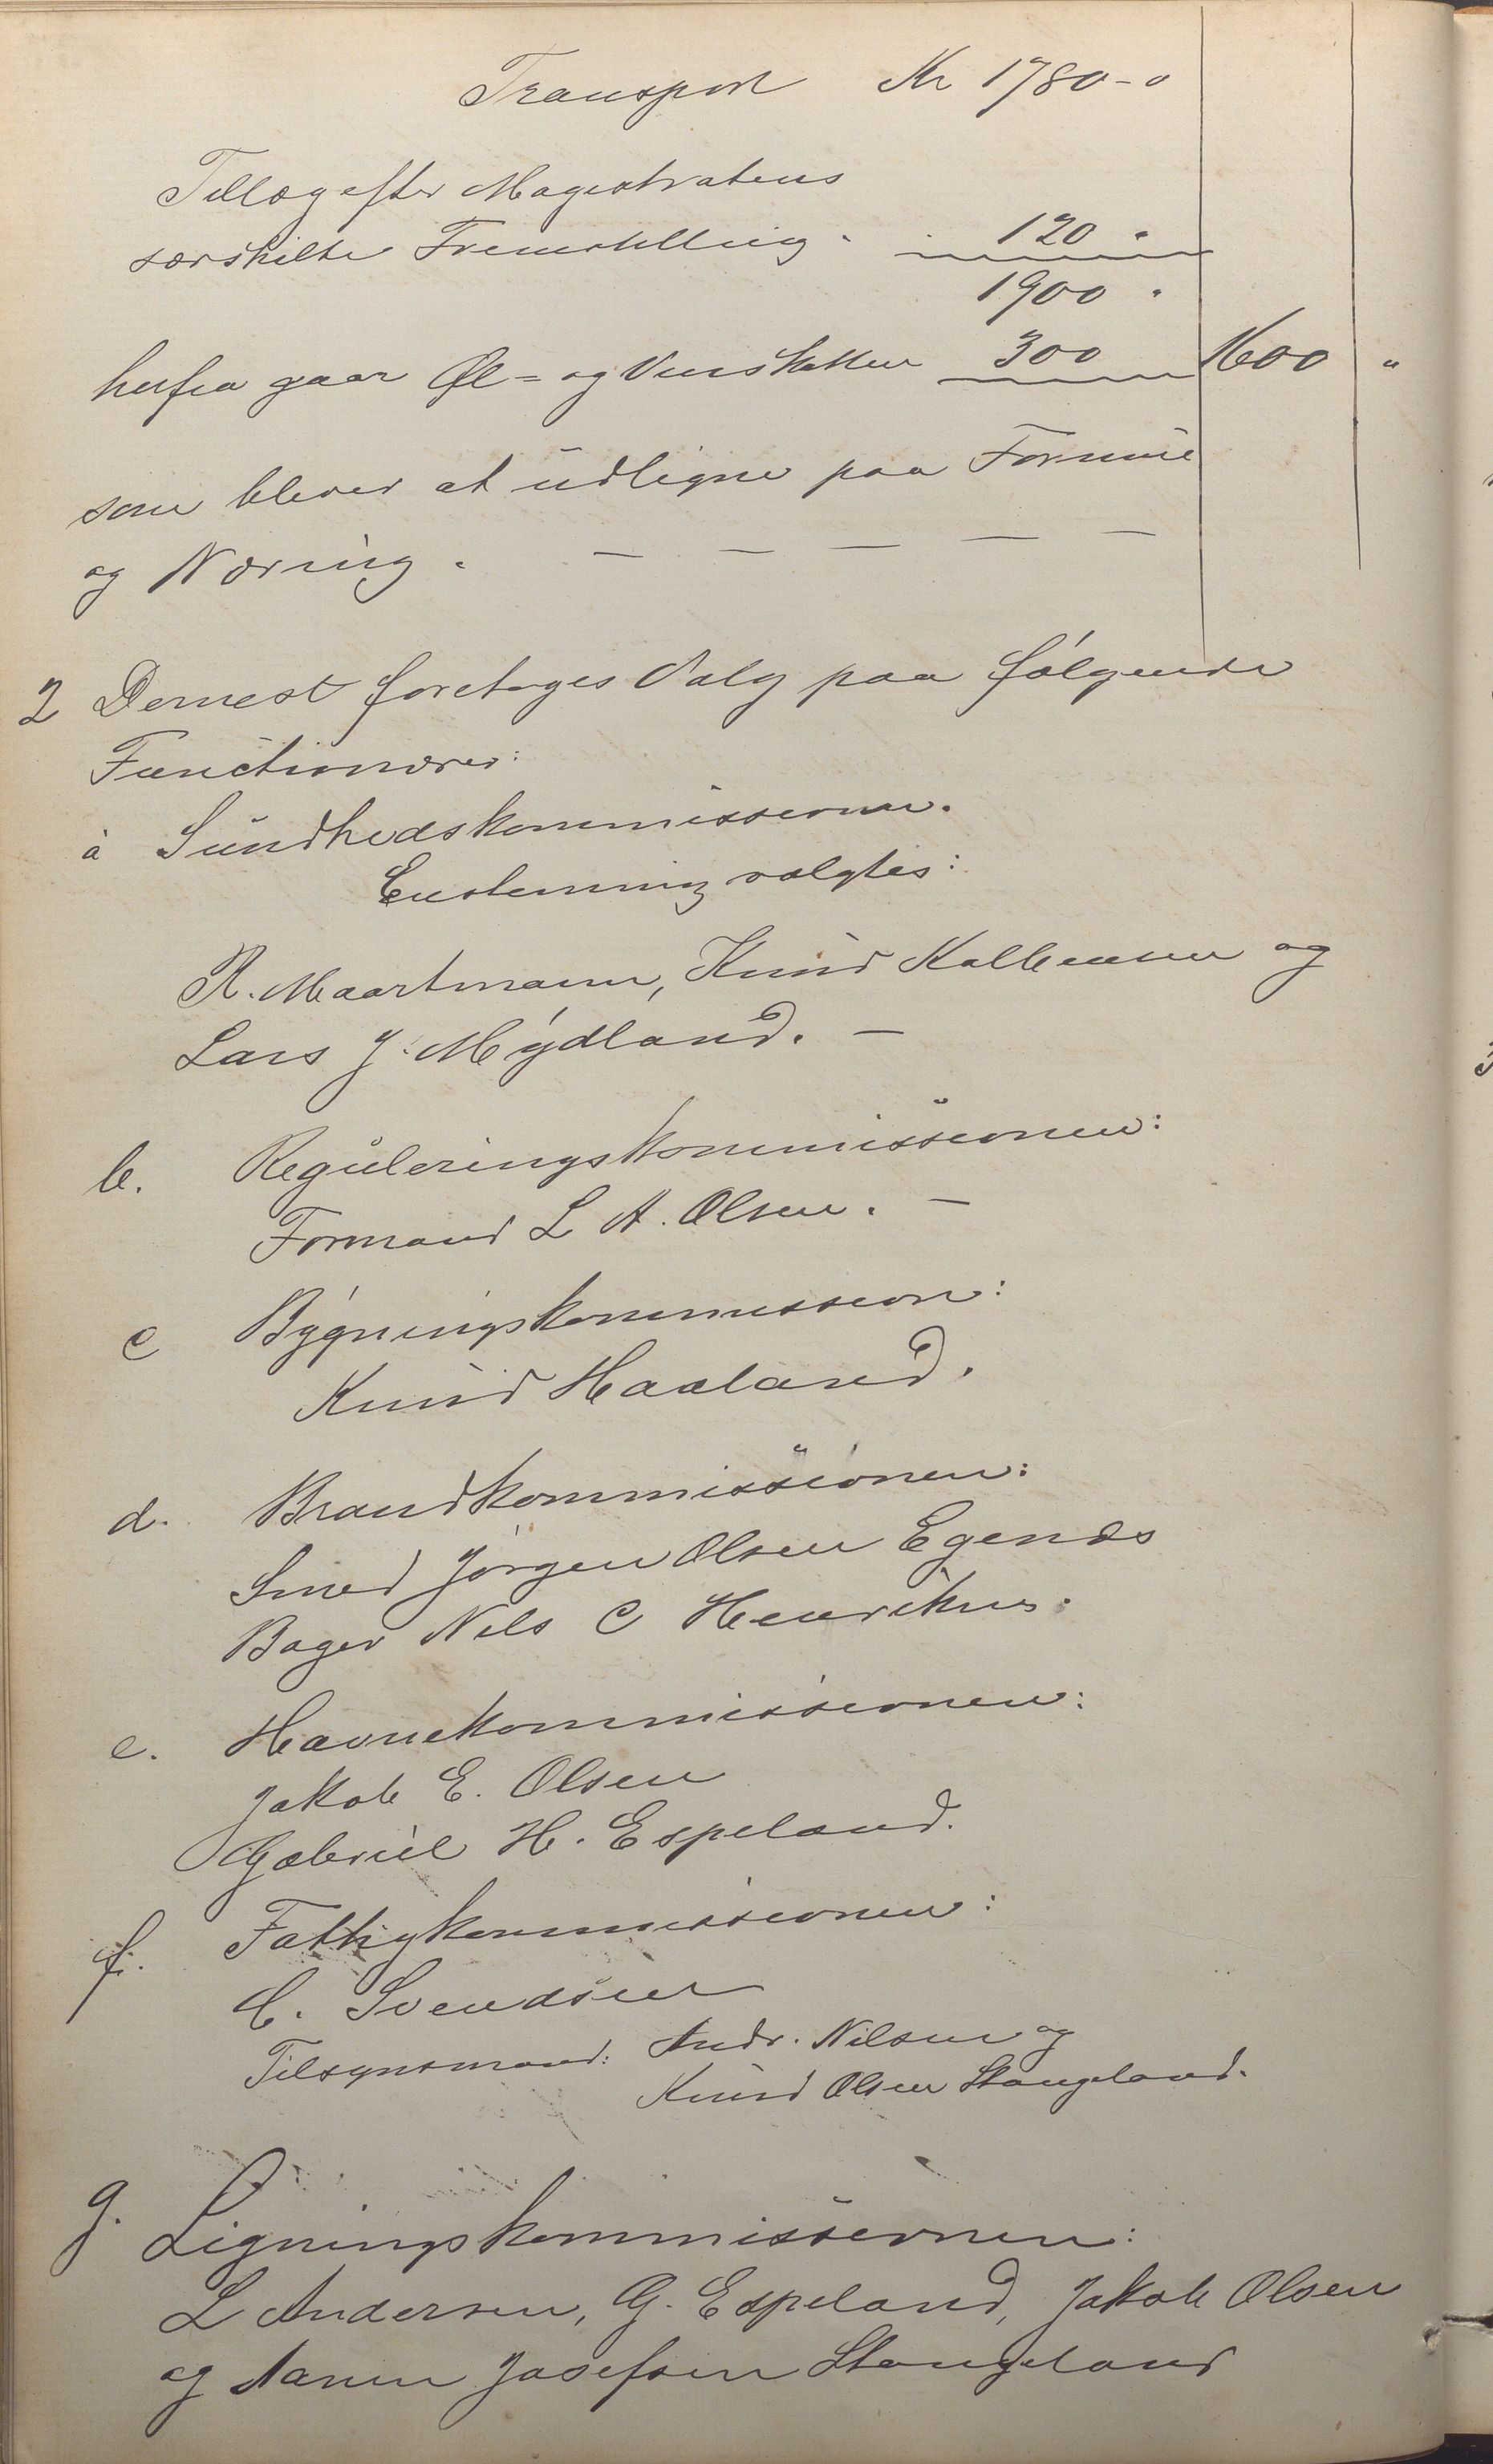 Transport Kr 1780-0
Tillæg efter Magistratens
særskilte Fremstilling . . 120 "
1900 "
herfra gaar Øl= og Vinskatten 300 1600 "
som bliver at udligne paa Formue
og Næring. — — — — —
2 Dernest foretoges Valg paa følgende
Functionærer:
a Sundhedskommissionen.
Enstemmig valgtes:
R. Maartmann, Knud Kalleman og
Lars J. Mydland. —
b. Reguleringskommissionen:
Formand L A. Olsen. —
c Bygningskommission:
Knud Haaland.
d. Brandkommissionen:
Smed Jørgen Olsen Egenæs
Bager Nils C Henriksen.
e. Havnekommissionen:
Jakob E. Olsen
Gabriel H. Espeland.
f. Fattigkommissionen:
C. Svendsen
Tilsynsmænd: Andr. Nilsen og
Knud Olsen Stangeland.
g. Ligningskommissionen:
L Andersen, G. Espeland, Jakob Olsen
og Aanen Josefsen Stangeland